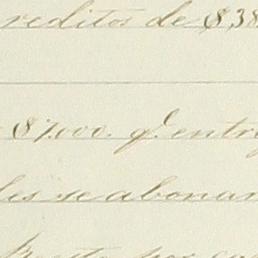 reditos de $38
$7.000. q. entr
les se abonar